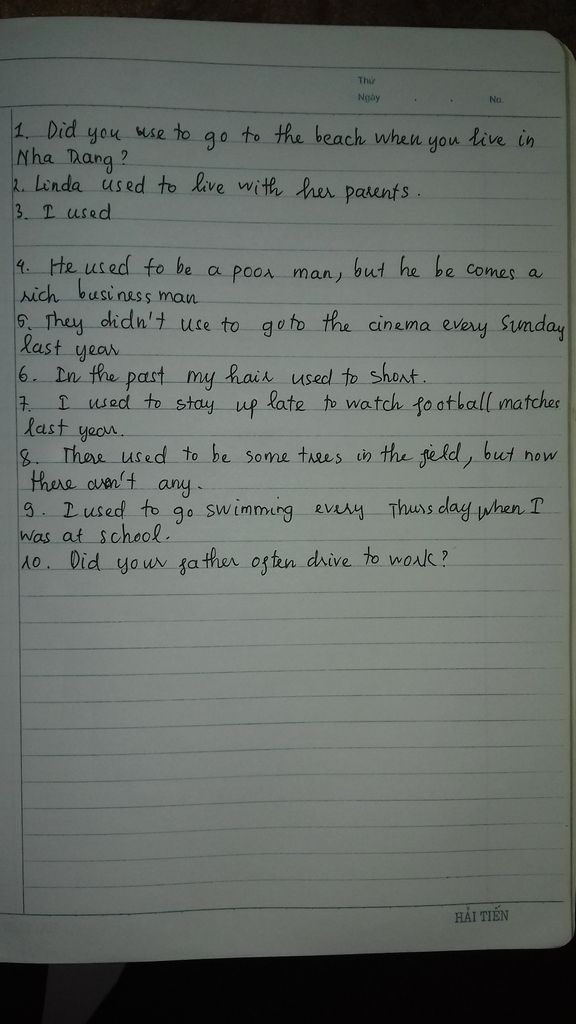 Thứ
Ngày . . No.
1. Did you use to go to the beach when you live in
Nha Trang?
2. Linda used to live with her parents.
3. I used
4. He used to be a poor man, but he be comes a
rich business man
5. They didn't use to goto the cinema every Sunday
last year
6. In the past my hair used to short.
7. I used to stay up late to watch football matches
last year.
8. There used to be some trees in the field, but now
there aren't any.
9. I used to go swimming every Thursday when I
was at school.
10. Did your father often drive to work?
HẢI TIẾN